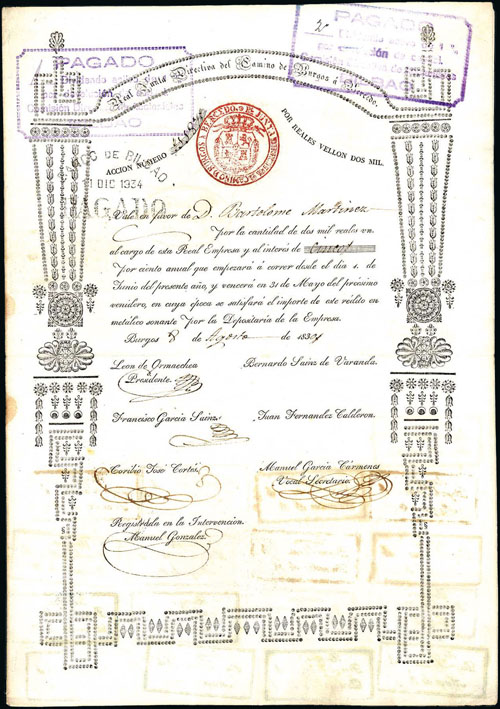 PAGADO
PAGADO
Real Junta Directiva del Camino de Burgos á Bercedo.
POR REALES VELLON DOS MIL.
BANCO DE BILBAO
ACCION NÚMERO
1 DIC 1934
PAGADO
Vale en favor de D. Bartolome Martinez
por la cantidad de dos mil reales vn.
al cargo de esta Real Empresa y al interés de
por ciento anual que empezará á correr desde el dia 1.
de Junio del presente año, y vencerá en 31 de Mayo del próximo
venidero, en cuya época se satisfará el importe de este rédito en
metálico sonante por la Depositaria de la Empresa.
Burgos 8 de Agosto de 183
Leon de Ormaechea
Presidente
Bernardo Sainz de Varanda.
Francisco García Sainz.
Juan Fernandez Calderon.
José Cortés
Manuel García Cármenes
Vocal Secretario
Registrada en la Intervencion.
Manuel Gonzalez